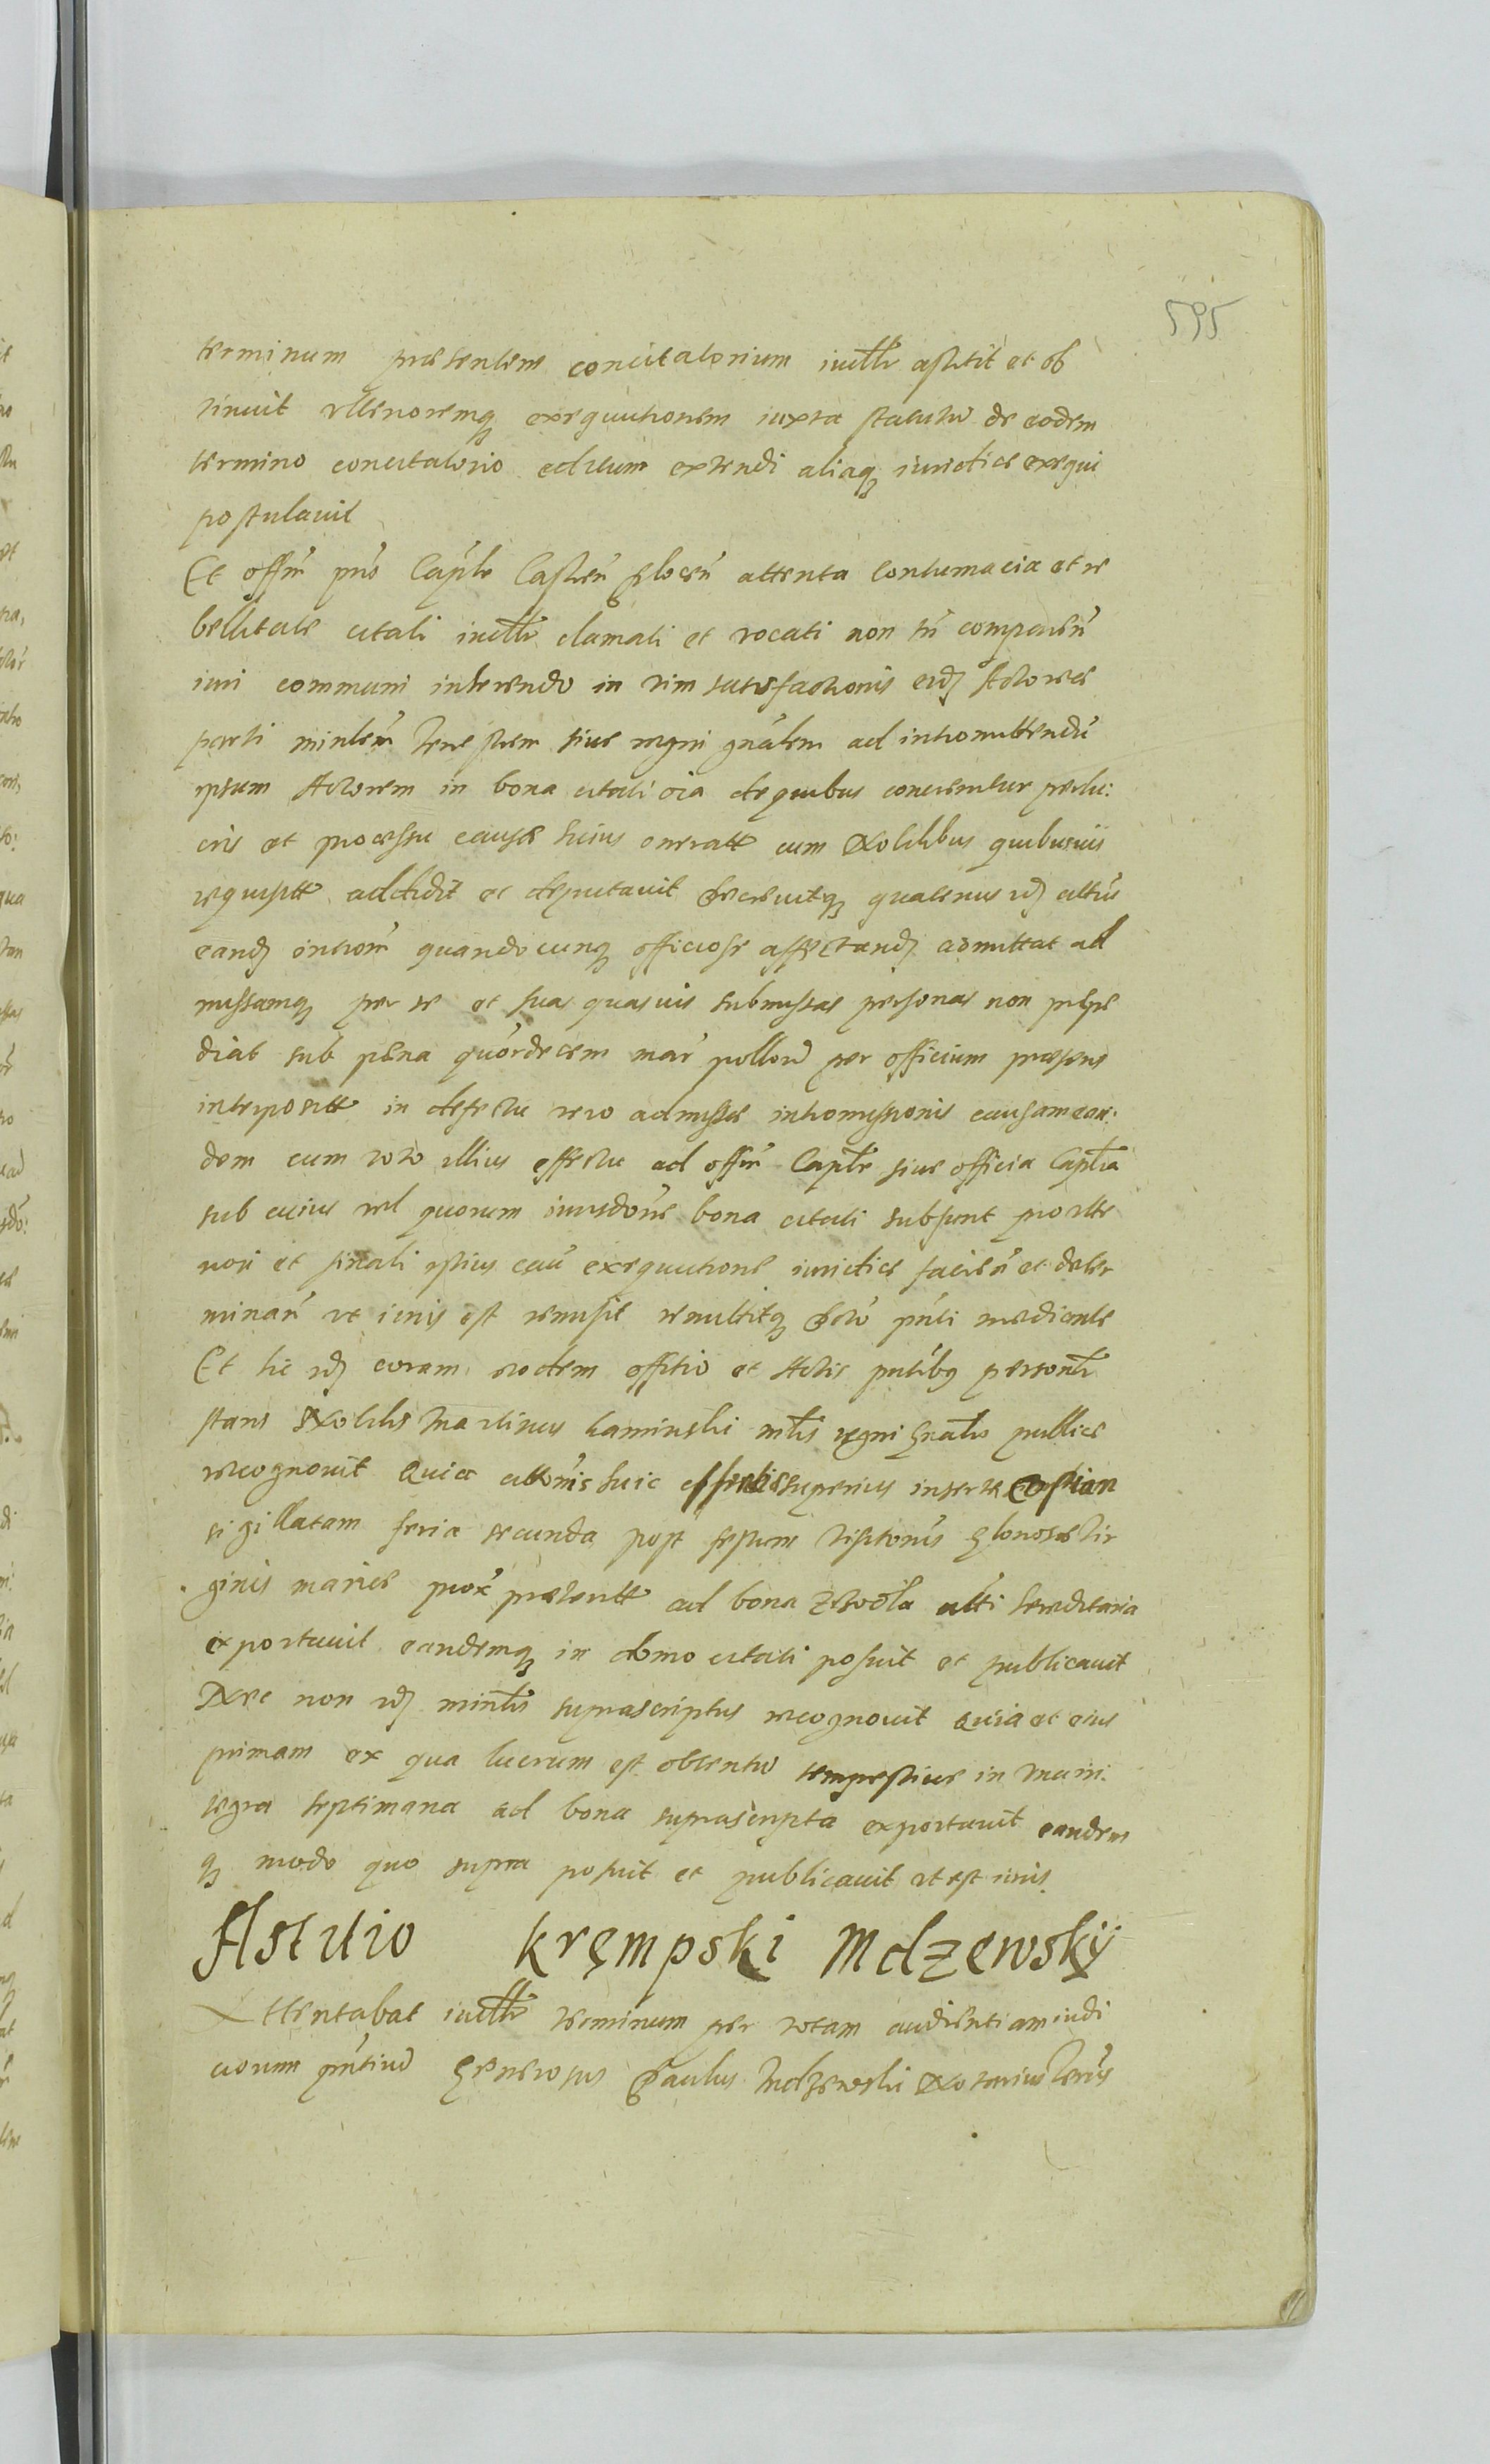 595
terminum præsentem concitatorium iudltr astitit et ob
tinuit vlterioremq exequutionem iuxta statutū de eodem
termino concitatorio editum extendi aliaq iuridice exequi
postulauit
Et offm pns Caple Castren Plocen attenta contumacia et re
bellitate citati iudltr clamati et vocati non tn comparen
iuri communi inherendo in vim satisfactionis eidj Actoreæ
parti minlem terrestrem siue regni gnalem ad intromittendū
ipsum Actorem in bona citati oia de quibus conuenitur perlu:
cris et processu causæ huius oneratt cum Nobilibus quibusuis
requisitt addidit et deputauit decreuitq quatenus idj cittus
eandj introm quandocunq officiose affectandj admittat ad
missamq per se et suas quasuis submissas personas non præpe
diat sub pæna quordecem mar pollon per officium præsens
interpositt in defectu vero admissæ intromissionis causam ean:
dem cum toto illius effectu ad offm Caple siue officia Caplia
sub cuius vel quorum iurisdone bona citati subsunt pro vlte
riori et finali ipsius cau exequutione iuridice facien et deter
minan vt iuris est remisit remittitq decto pnti mediante
Et hic idj coram eodem offitio et Actis pntibus personlr
stans Nobilis Martinus Kaminski mlis regni gnalis publice
recognouit Quia cittonis huic superius insertæ copian
sigillatam feria secunda post festum visitonis gloriosæ vir
ginis mariæ prox præteritt ad bona citti hereditaria
exportauit eandemq in domo citati posuit et publicauit
Nec non idj minlis suprascriptus recognouit Quia et eius
primam ex qua lucrum est obtentū tempestiue in
tegra septimana ad bona suprascripta exportauit eandem
q modo quo supra posuit et publicauit vt est iuris
Astitio Kręmpski Mdzewsky
Attentabat iudltr terminum per totam audientiam iudi
ciorum pntium Generosus Paulus Mdzewski Notarius Terris